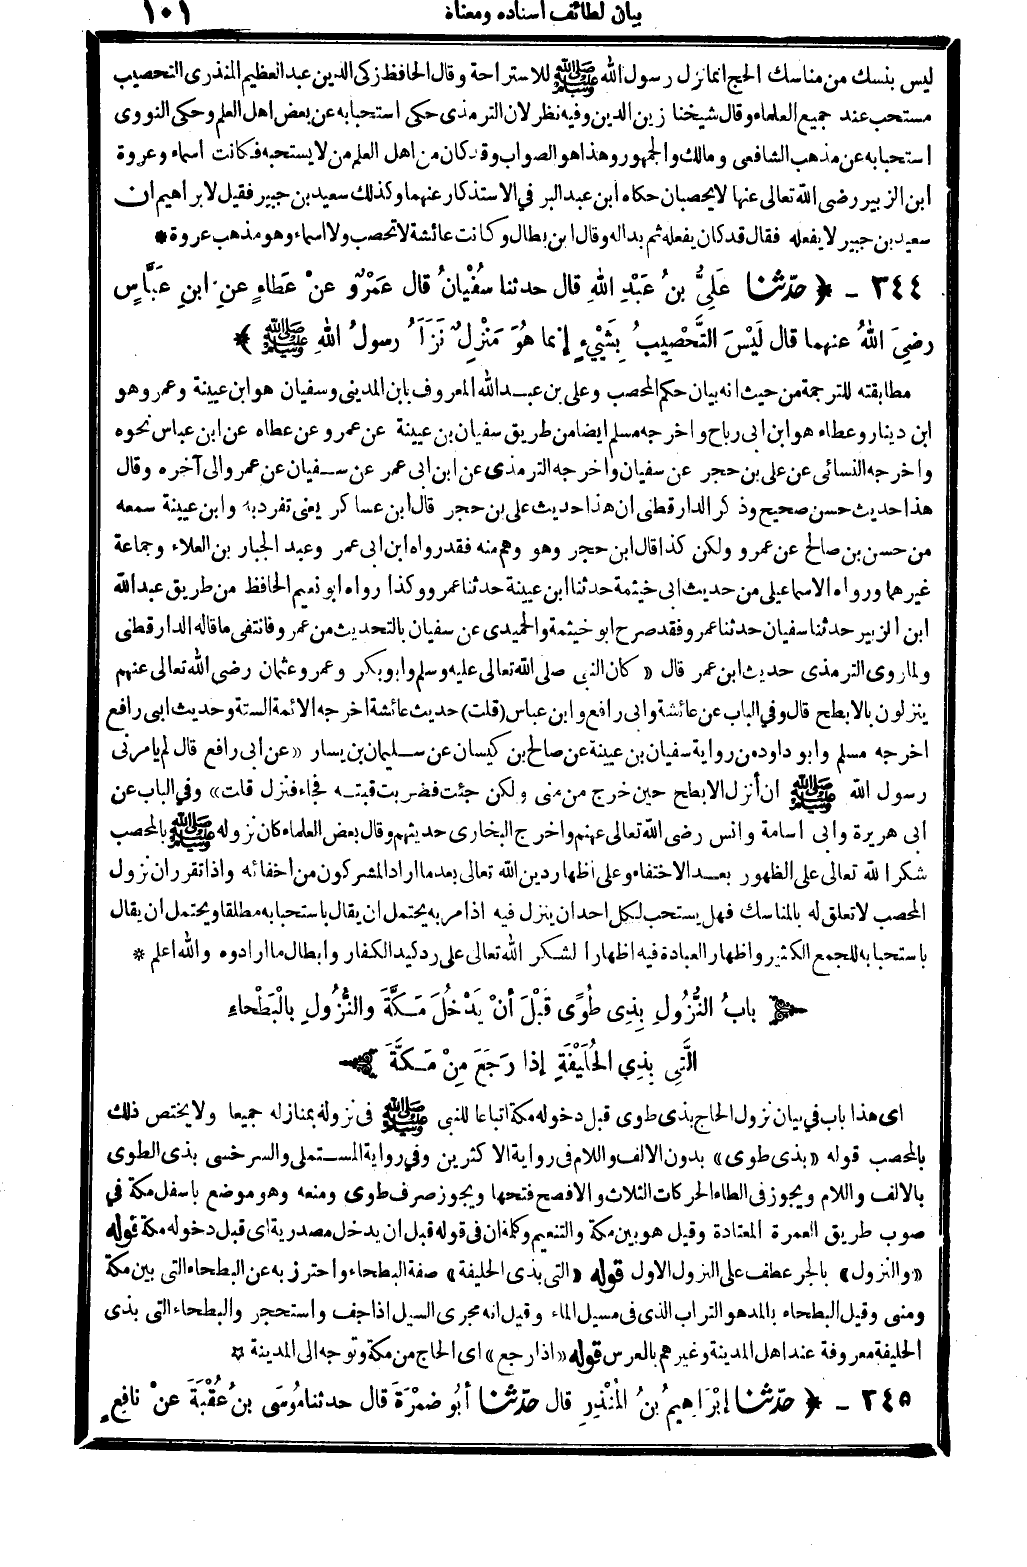 بيان لطائف اسناده ومعناه ١٠١
ليس بنسك من مناسك الحج انما نزل رسول الله ﷺ للاستراحة وقال الحافظ زكى الدين عبد العظيم المنذرى التحصيب
مستحب عند جميع العلماء وقال شيخنا زين الدين وفيه نظر لان الترمذى حكى استحبابه عن بعض اهل العلم وحكى النووى
استحبابه عن مذهب الشافعى ومالك والجمهور وهذا هو الصواب وقد كان من اهل العلم من لا يستحبه فكانت اسماء وعروة
ابن الزبير رضى الله تعالى عنها لا يحصبان حكاه ابن عبد البر في الاستذكار عنهما وكذلك سعيد بن جبير فقيل لابراهيم ان
سعيد بن جبير لا يفعله فقال قد كان يفعله ثم بداله وقال ابن بطال وكانت عائشة لا تحصب ولا اسماء وهو مذهب عروة *
٣٤٤ - ﴿ حدّثنا عَلِيُّ بنُ عَبْدِ اللهِ قال حدثنا سُفْيانُ قال عَمْرٌو عنْ عَطاءٍ عنِ ابنِ عَبَّاسٍ
رضيَ اللهُ عنهما قال لَيْسَ التَّحْصِيبُ بِشَيْءٍ إنما هُوَ مَنْزِلٌ نَزَلَهُ رسولُ اللهِ ﷺ ﴾
مطابقته للترجمة من حيث انه بيان حكم المحصب وعلى بن عبد الله المعروف بابن المدينى وسفيان هو ابن عيينة وعمر وهو
ابن دينار وعطاء هو ابن ابى رباح واخرجه مسلم ايضا من طريق سفيان بن عيينة عن عمرو عن عطاء عن ابن عباس نحوه
واخرجه النسائى عن على بن حجر عن سفيان واخرجه الترمذى عن ابن ابى عمر عن سفيان عن عمرو الى آخره وقال
هذا حديث حسن صحيح وذكر الدارقطنى ان هذا حديث على بن حجر قال ابن عساكر يعنى تفرد به وابن عيينة سمعه
من حسن بن صالح عن عمرو ولكن كذا قال ابن حجر وهو وهم منه فقد رواه ابن ابى عمر وعبد الجبار بن العلاء وجماعة
غيرهما ورواه الاسماعيلى من حديث ابى خيثمة حدثنا ابن عيينة حدثنا عمرو وكذا رواه ابو نعيم الحافظ من طريق عبد الله
ابن الزبير حدثنا سفيان حدثنا عمرو فقد صرح ابو خيثمة والحميدى عن سفيان بالتحديث من عمرو فانتفى ما قاله الدارقطنى
ولما روى الترمذى حديث ابن عمر قال « كان النبى صلى الله تعالى عليه وسلم وابو بكر وعمر وعثمان رضى الله تعالى عنهم
ينزلون بالابطح قال وفي الباب عن عائشة وابى رافع وابن عباس (قلت) حديث عائشة اخرجه الائمة الستة وحديث ابى رافع
اخرجه مسلم وابو داود من رواية سفيان بن عيينة عن صالح بن كيسان عن سليمان بن يسار «عن ابى رافع قال لم يامرنى
رسول الله ﷺ ان أنزل الابطح حين خرج من منى ولكن جئت فضربت قبته فجاء فنزل قلت» وفي الباب عن
ابى هريرة وابى اسامة وانس رضى الله تعالى عنهم واخرج البخارى حديثهم وقال بعض العلماء كان نزوله ﷺ بالمحصب
شكرا لله تعالى على الظهور بعد الاختفاء وعلى اظهار دين الله تعالى بعد ما اراد المشركون من اخفائه واذا تقرر ان نزول
المحصب لا تعلق له بالمناسك فهل يستحب لكل احد ان ينزل فيه اذا مر به يحتمل ان يقال باستحبابه مطلقا ويحتمل ان يقال
باستحبابه للجمع الكثير واظهار العبادة فيه اظهارا لشكر الله تعالى على رد كيد الكفار وابطال ما ارادوه والله اعلم *
بابُ النُّزُولِ بِذِي طُوًى قَبْلَ أنْ يَدْخُلَ مَكَّةَ والنُّزُولِ بالْبَطْحاءِ
الَّتِي بِذِي الحُلَيْفَةِ إذا رَجَعَ مِنْ مَكَّةَ
اى هذا باب في بيان نزول الحاج بذى طوى قبل دخوله مكة اتباعا للنبى ﷺ فى نزوله بمنازله جميعا ولا يختص ذلك
بالمحصب قوله «بذى طوى» بدون الالف واللام فى رواية الاكثرين وفي رواية المستملى والسرخسى بذى الطوى
بالالف واللام ويجوز فى الطاء الحركات الثلاث والافصح فتحها ويجوز صرف طوى ومنعه وهو موضع باسفل مكة في
صوب طريق العمرة المعتادة وقيل هو بين مكة والتنعيم وكلمة ان فى قوله قبل ان يدخل مصدرية اى قبل دخوله مكة قوله
«والنزول» بالجر عطف على النزول الاول قوله «التى بذى الحليفة» صفة البطحاء واحترز به عن البطحاء التى بين مكة
ومنى وقيل البطحاء بالمد هو التراب الذى فى مسيل الماء وقيل انه مجرى السيل اذا جف واستحجر والبطحاء التى بذى
الحليفة معروفة عند اهل المدينة وغيرهم بالمعرس قوله «اذا رجع» اى الحاج من مكة وتوجه الى المدينة *
٣٤٥ - ﴿ حدّثنا إبْرَاهِيمُ بنُ المُنْذِرِ قال حدّثنا أبُو ضمْرَةَ قال حدثنا مُوسَى بنُ عُقْبَةَ عنْ نافِعٍ